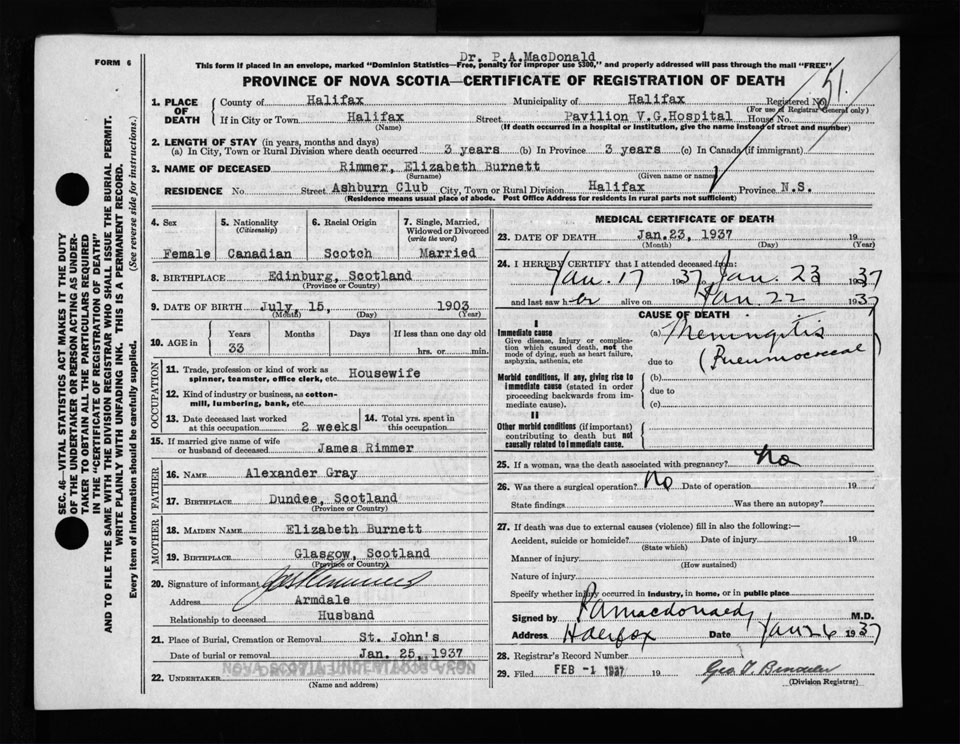 Dr. P.A.MacDonald
FORM 6
This form if placed in an envelope, marked "Dominion Statistics—Free, penalty for improper use $300," and properly addressed will pass through the mail "FREE"
PROVINCE OF NOVA SCOTIA—CERTIFICATE OF REGISTRATION OF DEATH
51
1. PLACE OF DEATH
County of Halifax Municipality of Halifax Registered No.
(For use of Registrar General only)
If in City or Town Halifax Street Pavilion V.G.Hospital House No.
(Name) (If death occurred in a hospital or institution, give the name instead of street and number)
2. LENGTH OF STAY (in years, months and days)
(a) In City, Town or Rural Division where death occurred 3 years (b) In Province 3 years (c) In Canada (if immigrant)
3. NAME OF DECEASED Rimmer, Elizabeth Burnett
(Surname) (Given name or names)
RESIDENCE No Street Ashburn Club City, Town or Rural Division Halifax Province N.S.
(Residence means usual place of abode. Post Office Address for residents in rural parts not sufficient)
SEC. 46—VITAL STATISTICS ACT MAKES IT THE DUTY
OF THE UNDERTAKER OR PERSON ACTING AS UNDER-
TAKER TO OBTAIN ALL THE PARTICULARS REQUIRED
IN THE "CERTIFICATE OF REGISTRATION OF DEATH"
AND TO FILE THE SAME WITH THE DIVISION REGISTRAR WHO SHALL ISSUE THE BURIAL PERMIT.
WRITE PLAINLY WITH UNFADING INK. THIS IS A PERMANENT RECORD.
Every item of information should be carefully supplied. (See reverse side for instructions.)
4. Sex
Female
5. Nationality
(Citizenship)
Canadian
6. Racial Origin
Scotch
7. Single, Married,
Widowed or Divorced
(write the word)
Married
8. BIRTHPLACE Edinburg, Scotland
(Province or Country)
9. DATE OF BIRTH July, 15, 1903
(Month) (Day) (Year)
10. AGE in
Years Months Days If less than one day old
33 hrs. or min.
OCCUPATION
11. Trade, profession or kind of work as
spinner, teamster, office clerk, etc. Housewife
12. Kind of industry or business, as cotton-
mill, lumbering, bank, etc.
13. Date deceased last worked
at this occupation 2 weeks
14. Total yrs. spent in
this occupation
15. If married give name of wife
or husband of deceased James Rimmer
FATHER
16. NAME Alexander Gray
17. BIRTHPLACE Dundee, Scotland
(Province or Country)
MOTHER
18. MAIDEN NAME Elizabeth Burnett
19. BIRTHPLACE Glasgow, Scotland
(Province or Country)
20. Signature of informant
Address Armdale
Relationship to deceased Husband
21. Place of Burial, Cremation or Removal St. John's
Date of burial or removal Jan. 25, 1937
22. UNDERTAKER
(Name and address)
MEDICAL CERTIFICATE OF DEATH
23. DATE OF DEATH Jan.23, 1937 19
(Month) (Day) (Year)
24. I HEREBY CERTIFY that I attended deceased from:
Jan. 17 1937 Jan. 23 1937
and last saw h er alive on Jan. 22 1937
CAUSE OF DEATH
I
Immediate cause
Give disease, injury or complica-
tion which caused death, not the
mode of dying, such as heart failure,
asphyxia, asthenia, etc
(a) Meningitis
due to (Pneumococcal
Morbid conditions, if any, giving rise to
immediate cause (stated in order
proceeding backwards from im-
mediate cause).
(b)
due to
(c)
II
Other morbid conditions (if important)
contributing to death but not
causally related to immediate cause.
25. If a woman, was the death associated with pregnancy? No
26. Was there a surgical operation? No Date of operation 19
State findings Was there an autopsy?
27. If death was due to external causes (violence) fill in also the following:—
Accident, suicide or homicide? Date of injury 19
(State which)
Manner of injury
(How sustained)
Nature of injury
Specify whether injury occurred in industry, in home, or in public place
Signed by P A Macdonald, M.D.
Address Halifax Date Jan 26 1937
28. Registrar's Record Number
29. Filed FEB -1 1937 19
(Division Registrar)